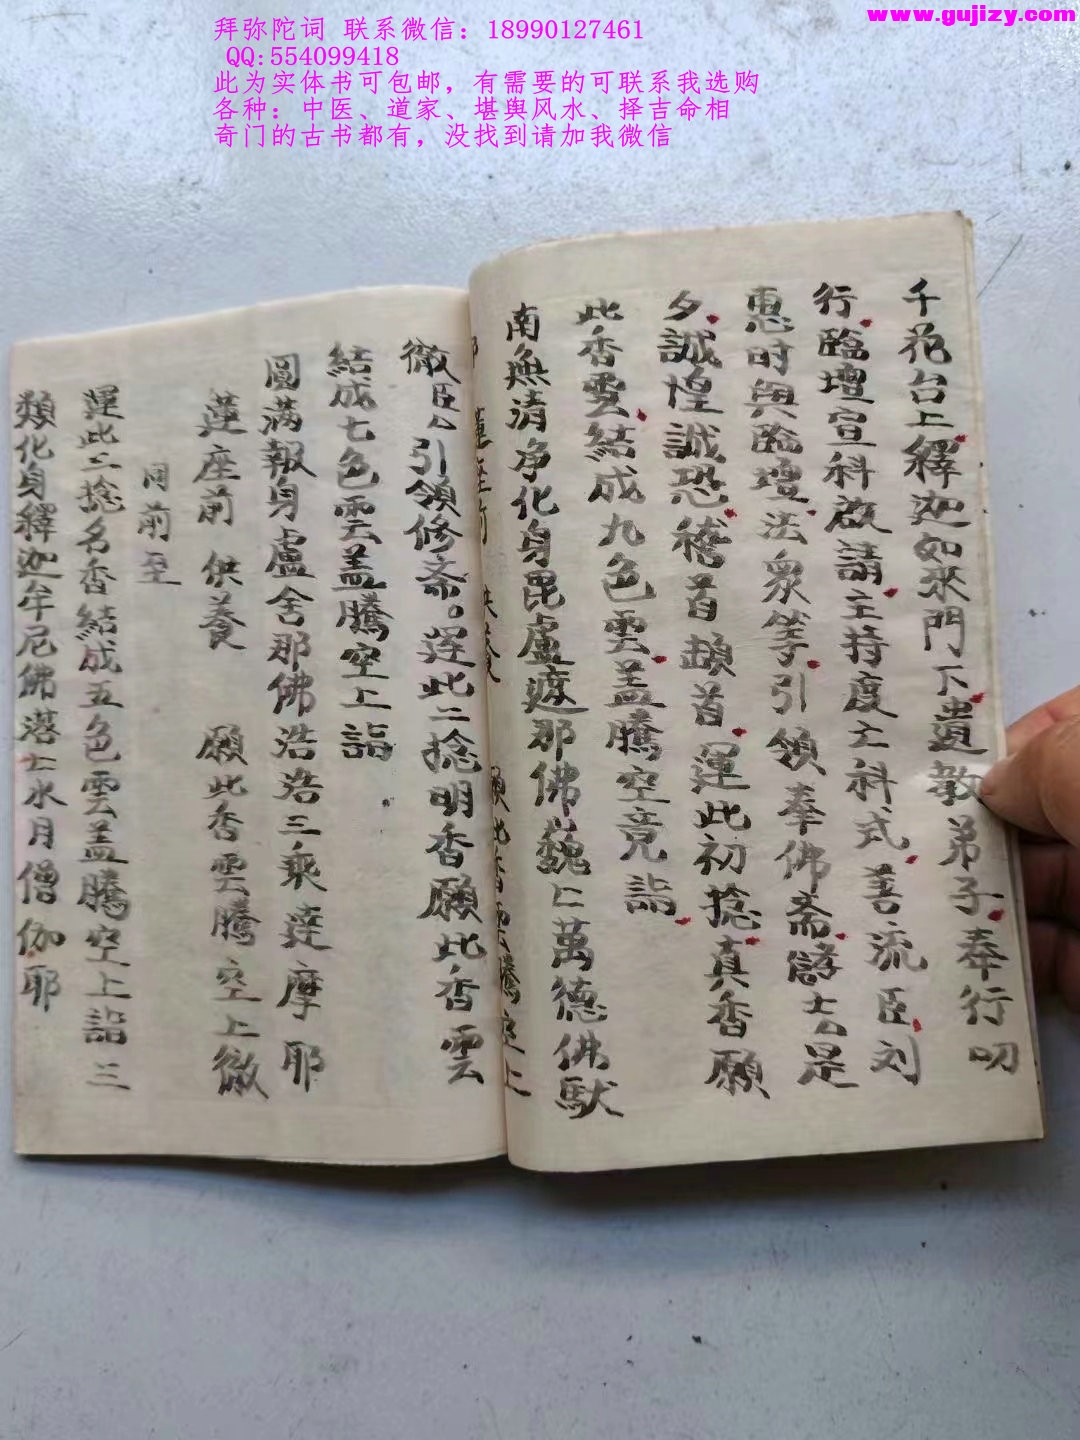 www.gujizy.com
拜弥陀词 联系微信：18990127461
QQ:554099418
此为实体书可包邮，有需要的可联系我选购
各种：中医、道家、堪舆风水、择吉命相
奇门的古书都有，没找到请加我微信
千花台上釋迦如來門下遺教弟子奉行叨
行臨壇宣科啟請主持度士科式善流臣刘
惠时與臨壇法衆等引領奉佛斋儲士是
夕誠惶誠恐稽首頓首運此初捻真香願
此香雲結成九色雲盖騰空竟詣
南無清净化身毘盧遮那佛巍仁萬德佛馱
耶 蓮座前 供養 願此香雲騰空上
微臣引領修斋。運此二捻明香願此香雲
結成七色雲盖騰空上詣
圓满報身盧舍那佛浩浩三乘達摩耶
蓮座前 供養 願此香雲騰空上徹
同前至
運此三捻名香結成五色雲盖騰空上詣三
類化身釋迦牟尼佛落士水月僧伽耶